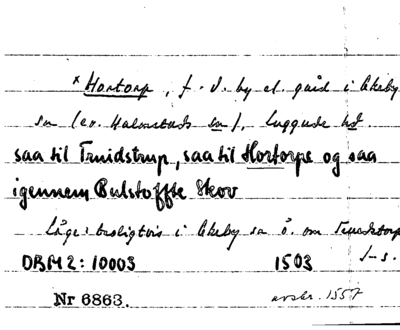 × Hortorp, f. d. by el. gård i Ekeby
sn (ev. Halmstads sn), Luggude hd.
saa til Truidstrup, saa til Hortorpe og saa
igennem Bulstoffte Skov
Läge: troligtvis i Ekeby sn ö. om Truedstorp
DBM 2: 10003 1503 J-s.
Nr 6863. avskr. 1557